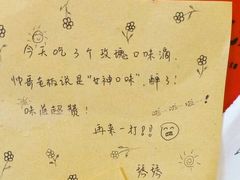 今天吃了个玫瑰口味滴，
帅哥老板说是“女神口味”醉了！
味道超赞！
再来一打!!!